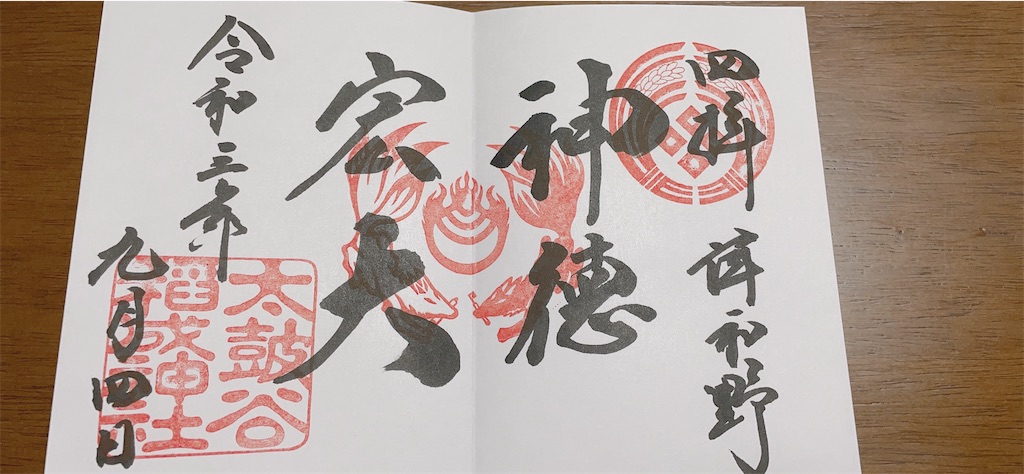 四拝 津和野
神徳
宏大
令和三年
九月四日
太鼓谷
稲成神社